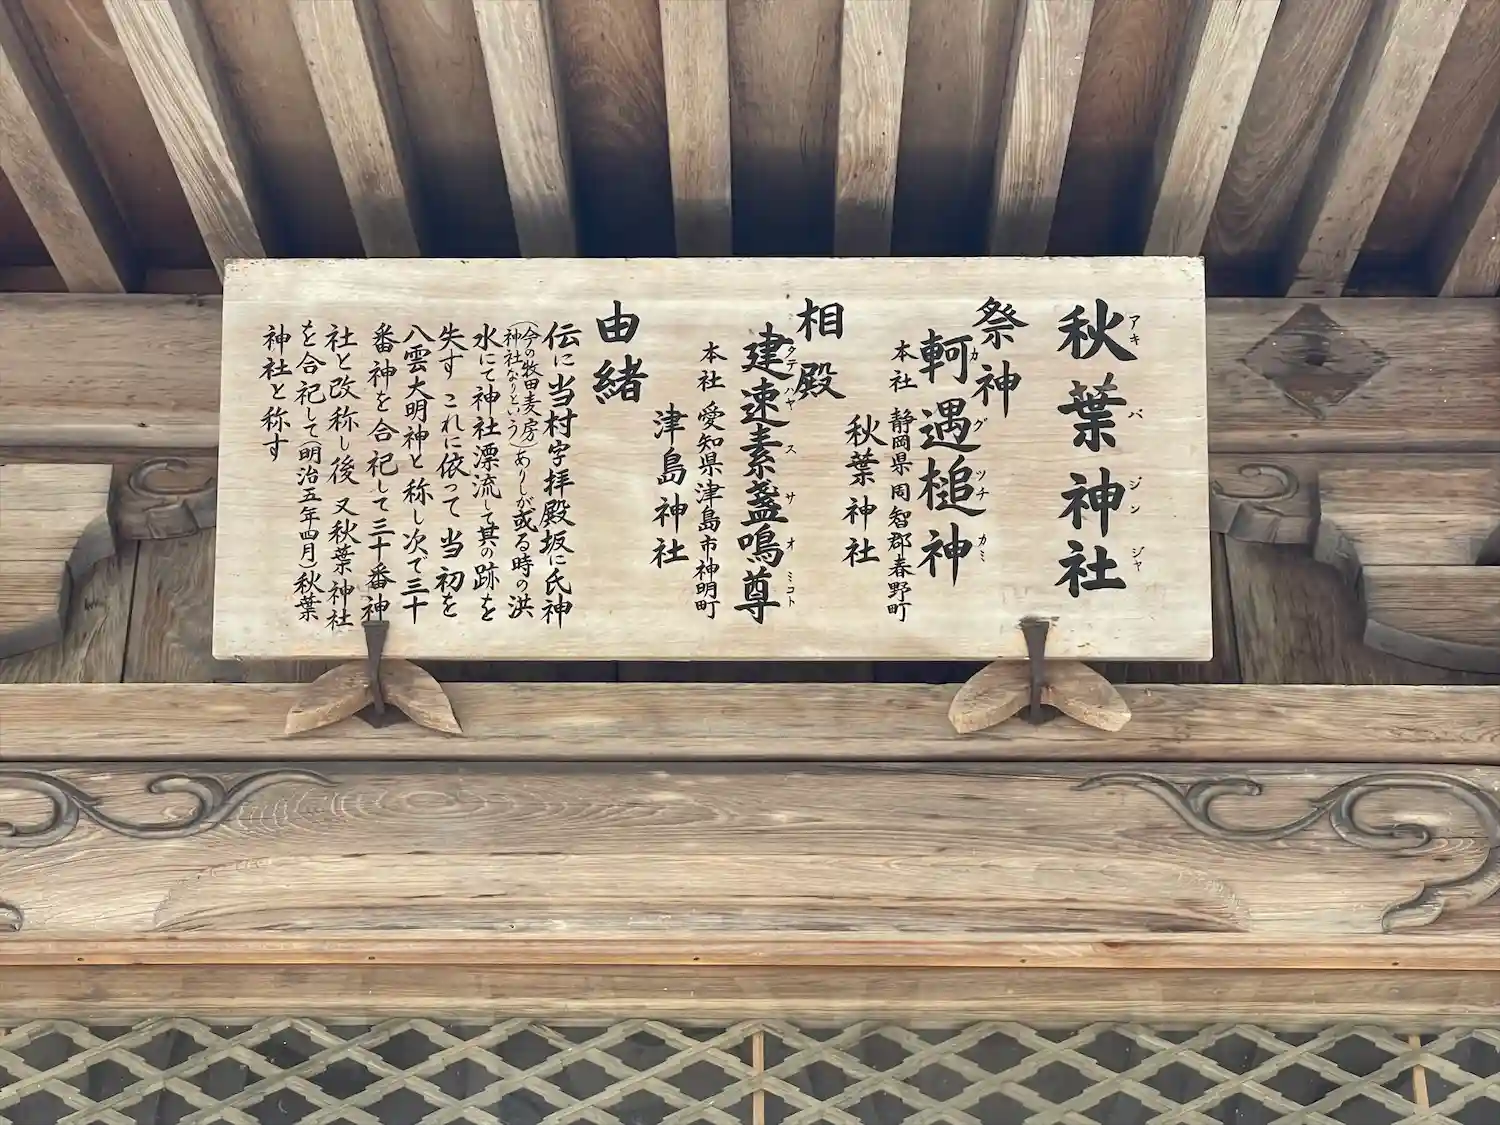 秋葉神社
アキバジンジャ
祭神
軻遇槌神
カグツチカミ
本社 静岡県周智郡春野町
秋葉神社
相殿
建速素盞鳴尊
タテハヤスサオミコト
本社 愛知県津島市神明町
津島神社
由緒
伝に当村字拝殿坂に氏神
(今の牧田麦房
神社なりという)ありしが或る時の洪
水にて神社漂流して其の跡を
失す これに依って当初を
八雲大明神と称し次で三十
番神を合祀して三十番神
社と改称し後 又秋葉神社
を合祀して(明治五年四月)秋葉
神社と称す